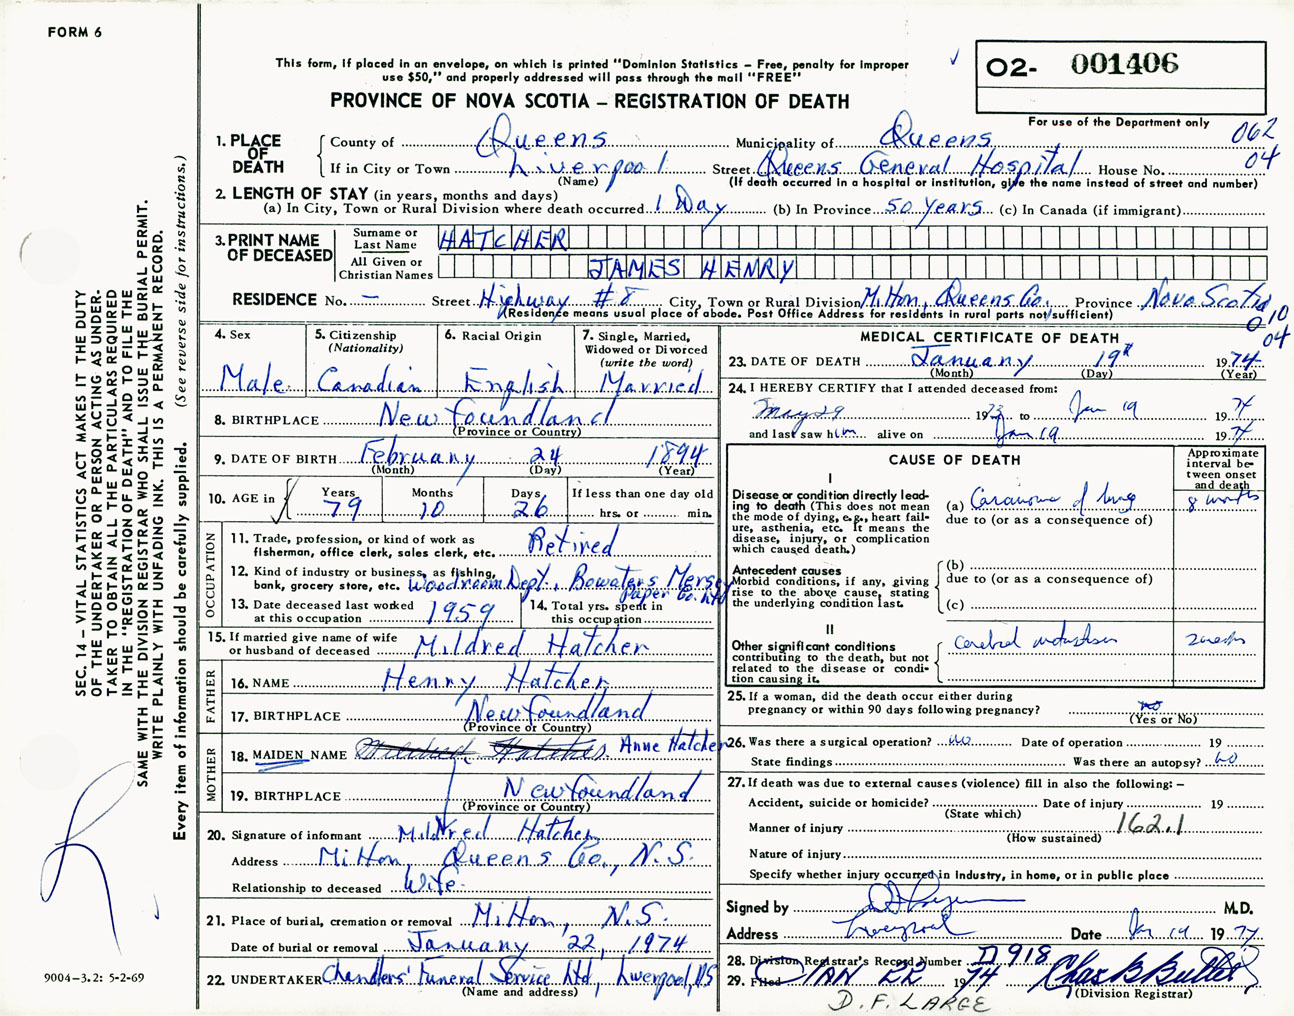 FORM 6
This form, if placed in an envelope, on which is printed "Dominion Statistics – Free, penalty for improper
use $50," and properly addressed will pass through the mail "FREE"
PROVINCE OF NOVA SCOTIA – REGISTRATION OF DEATH
02- 001406
For use of the Department only
062
04
1. PLACE OF DEATH
County of Queens Municipality of Queens
If in City or Town Liverpool Street Queens General Hospital House No.
(Name) (If death occurred in a hospital or institution, give the name instead of street and number)
2. LENGTH OF STAY (in years, months and days)
(a) In City, Town or Rural Division where death occurred 1 Day (b) In Province 50 years (c) In Canada (if immigrant)
3. PRINT NAME OF DECEASED
Surname or Last Name HATCHER
All Given or Christian Names JAMES HENRY
RESIDENCE No. – Street Highway #8 City, Town or Rural Division Milton, Queens Co. Province Nova Scotia
(Residence means usual place of abode. Post Office Address for residents in rural parts not sufficient)
010
04
4. Sex Male
5. Citizenship (Nationality) Canadian
6. Racial Origin English
7. Single, Married, Widowed or Divorced (write the word) Married
8. BIRTHPLACE Newfoundland
(Province or Country)
9. DATE OF BIRTH February 24 1894
(Month) (Day) (Year)
10. AGE in Years 79 Months 10 Days 26 If less than one day old hrs. or min.
OCCUPATION
11. Trade, profession, or kind of work as fisherman, office clerk, sales clerk, etc. Retired
12. Kind of industry or business, as fishing, bank, grocery store, etc. Woodroom Dept., Bowaters Mersey Paper Co. Ltd
13. Date deceased last worked at this occupation 1959
14. Total yrs. spent in this occupation
15. If married give name of wife or husband of deceased Mildred Hatcher
FATHER
16. NAME Henry Hatcher
17. BIRTHPLACE Newfoundland
(Province or Country)
MOTHER
18. MAIDEN NAME Mildred Hatcher Anne Hatcher
19. BIRTHPLACE Newfoundland
(Province or Country)
20. Signature of informant Mildred Hatcher
Address Milton, Queens Co., N.S.
Relationship to deceased Wife
21. Place of burial, cremation or removal Milton, N.S.
Date of burial or removal January 22, 1974
22. UNDERTAKER Chandlers' Funeral Service Ltd, Liverpool, NS
(Name and address)
MEDICAL CERTIFICATE OF DEATH
23. DATE OF DEATH January 19th 1974
(Month) (Day) (Year)
24. I HEREBY CERTIFY that I attended deceased from:
May 29 1973 to Jan 19 1974
and last saw him alive on Jan 19 1974
CAUSE OF DEATH
Approximate interval between onset and death
I
Disease or condition directly leading to death (This does not mean the mode of dying, e.g., heart failure, asthenia, etc. It means the disease, injury, or complication which caused death.)
(a) Carcinoma of lung 8 months
due to (or as a consequence of)
Antecedent causes
Morbid conditions, if any, giving rise to the above cause, stating the underlying condition last.
(b)
due to (or as a consequence of)
(c)
II
Other significant conditions contributing to the death, but not related to the disease or condition causing it.
Cerebral metastases
25. If a woman, did the death occur either during pregnancy or within 90 days following pregnancy? no
(Yes or No)
26. Was there a surgical operation? no Date of operation 19
State findings Was there an autopsy? no
27. If death was due to external causes (violence) fill in also the following: –
Accident, suicide or homicide? Date of injury 19
(State which)
Manner of injury 162.1
(How sustained)
Nature of injury
Specify whether injury occurred in industry, in home, or in public place
Signed by M.D.
Address Liverpool Date Jan 19 1974
28. Division Registrar's Record Number 918
29. Filed JAN 1974 Chas B Butler
(Division Registrar)
D. F. LARGE
SEC. 14 – VITAL STATISTICS ACT MAKES IT THE DUTY
OF THE UNDERTAKER OR PERSON ACTING AS UNDER-
TAKER TO OBTAIN ALL THE PARTICULARS REQUIRED
IN THE "REGISTRATION OF DEATH" AND TO FILE THE
SAME WITH THE DIVISION REGISTRAR WHO SHALL ISSUE THE BURIAL PERMIT.
WRITE PLAINLY WITH UNFADING INK. THIS IS A PERMANENT RECORD.
Every item of Information should be carefully supplied. (See reverse side for instructions.)
9004-3.2: 5-2-69